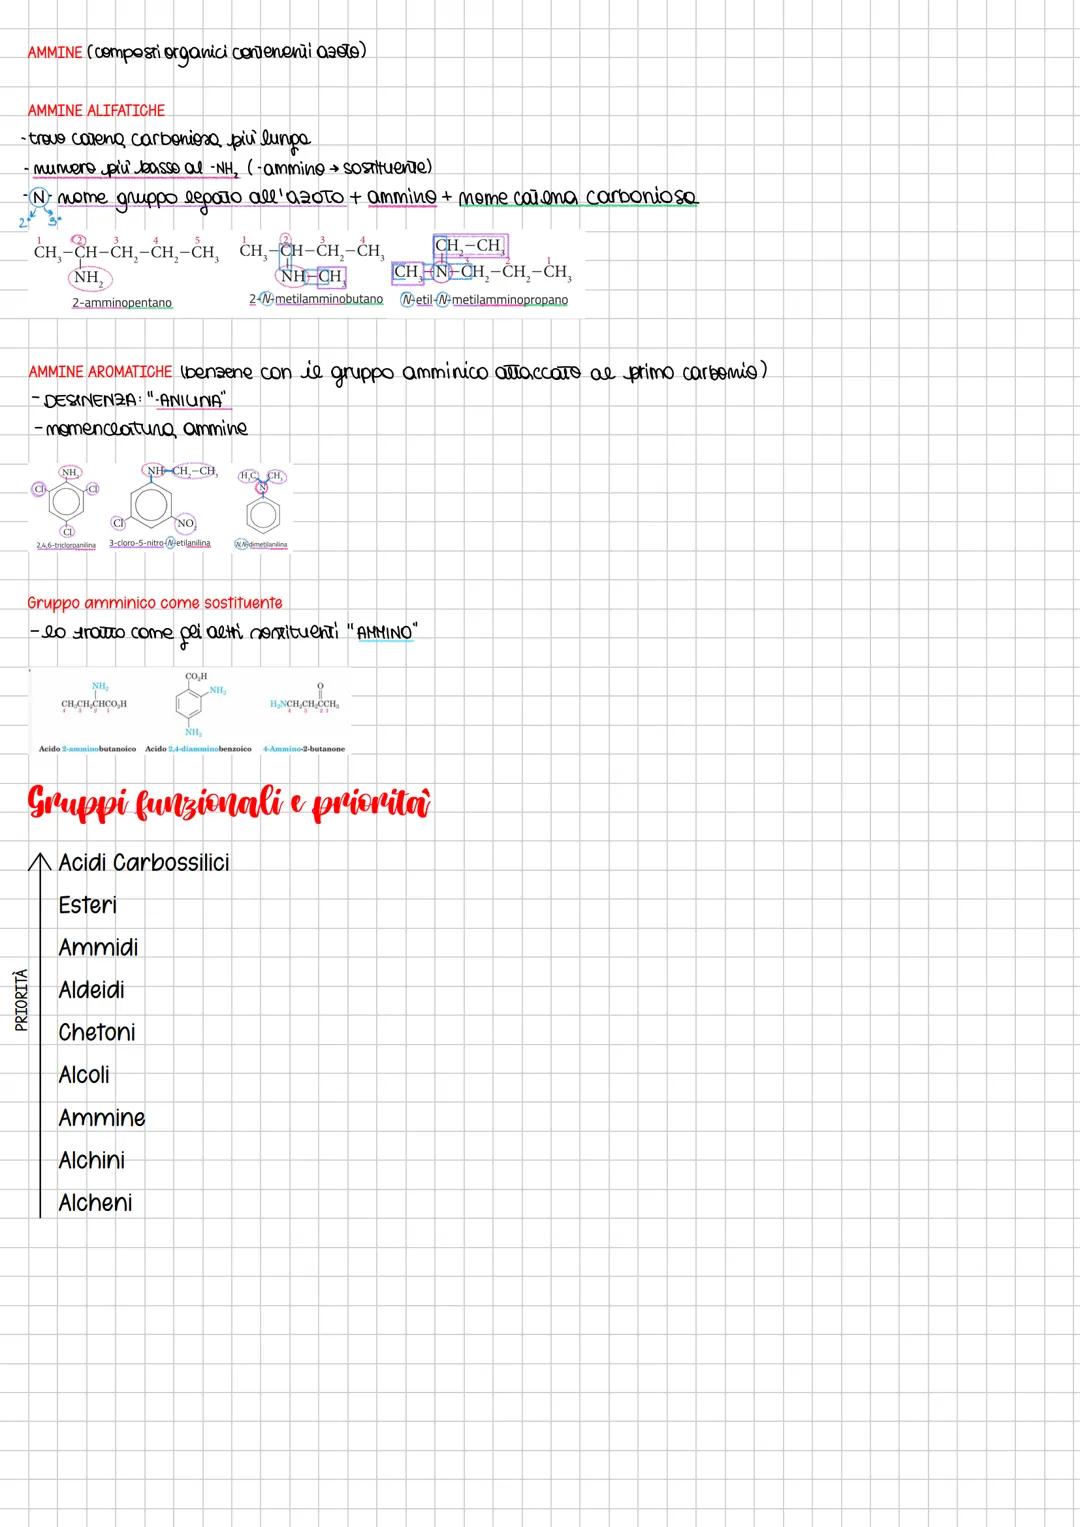 AMMINE (composti organici contenenti azoto)
AMMINE ALIFATICHE
- trovo catena carboniosa più lunga
- numero più basso al -NH₂ (-ammino → sostituente)
- N- nome gruppo legato all'azoto + ammino + nome catena carboniosa
2° 3°
1 2 3 4 5
CH₃-CH-CH₂-CH₂-CH₃
NH₂
2-amminopentano
1 2 3 4
CH₃-CH-CH₂-CH₃
NH-CH₃
2-N-metilamminobutano
CH₂-CH₃
3 2 1
CH₃-N-CH₂-CH₂-CH₃
N-etil-N-metilamminopropano
AMMINE AROMATICHE (benzene con il gruppo amminico attaccato al primo carbonio)
- DESINENZA: "-ANILINA"
- nomenclatura ammine
NH₂
Cl Cl
Cl
2,4,6-tricloroanilina
NH-CH₂-CH₃
Cl NO₂
3-cloro-5-nitro-N-etilanilina
H₃C CH₃
N
N,N-dimetilanilina
Gruppo amminico come sostituente
- lo tratto come gli altri sostituenti "AMMINO"
NH₂
CH₃CH₂CHCO₂H
4 3 2 1
Acido 2-amminobutanoico
CO₂H
NH₂
NH₂
Acido 2,4-diamminobenzoico
O
H₂NCH₂CH₂CCH₃
4 3 2 1
4-Ammino-2-butanone
Gruppi funzionali e priorità
PRIORITÀ
Acidi Carbossilici
Esteri
Ammidi
Aldeidi
Chetoni
Alcoli
Ammine
Alchini
Alcheni